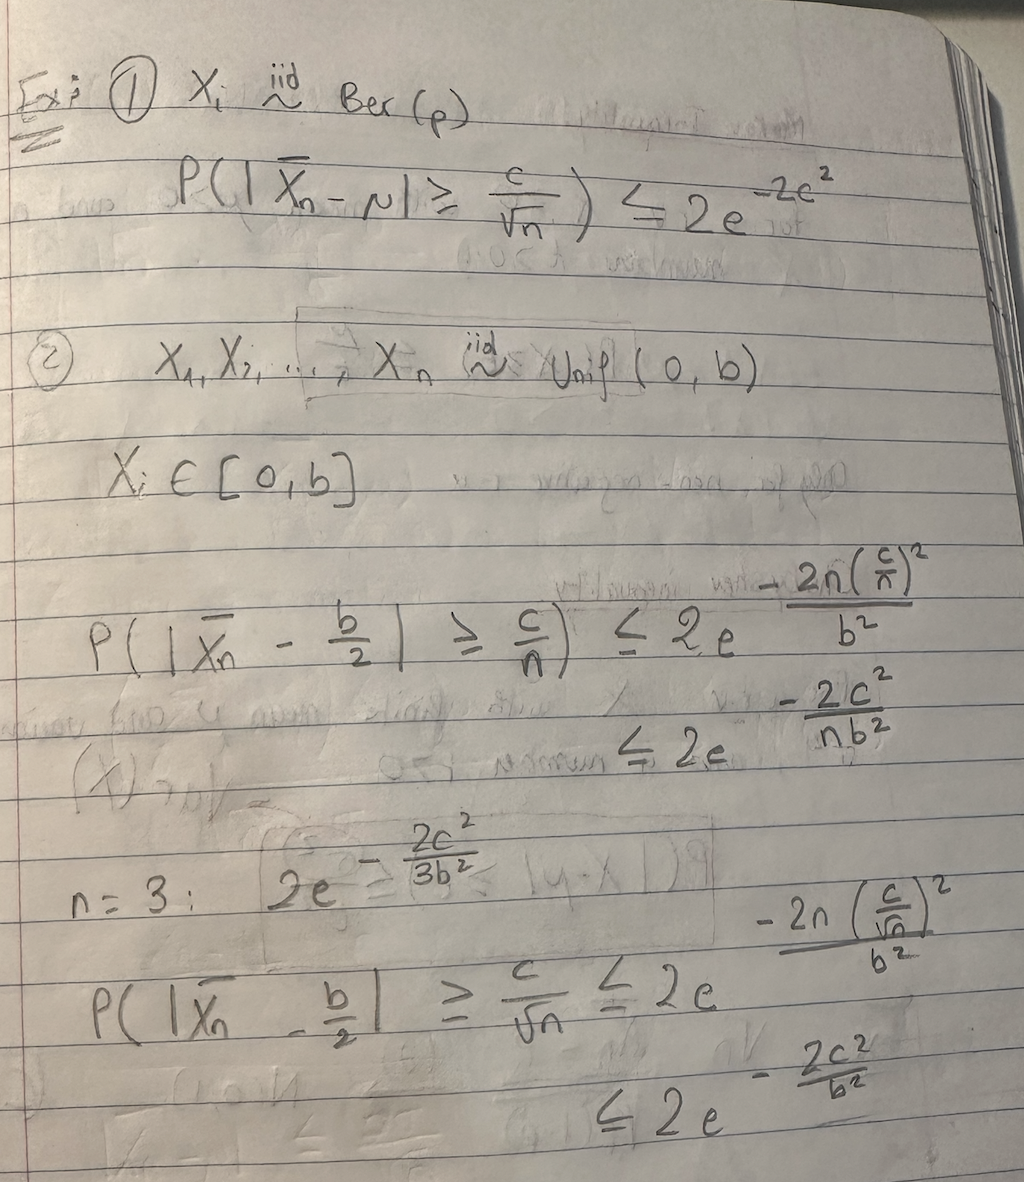 Ex: ① Xᵢ iid ~ Ber(p)
P(|X̄ₙ - μ| ≥ c/√n) ≤ 2e^(-2c²)
② X₁, X₂, ..., Xₙ iid ~ Unif (0, b)
Xᵢ ∈ [0, b]
P(|X̄ₙ - b/2| ≥ c/n) ≤ 2e^(-2n(c/n)²/b²)
≤ 2e^(-2c²/nb²)
n = 3: 2e^(-2c²/3b²)
P(|X̄ₙ - b/2| ≥ c/√n ≤ 2e^(-2n(c/√n)²/b²)
≤ 2e^(-2c²/b²)